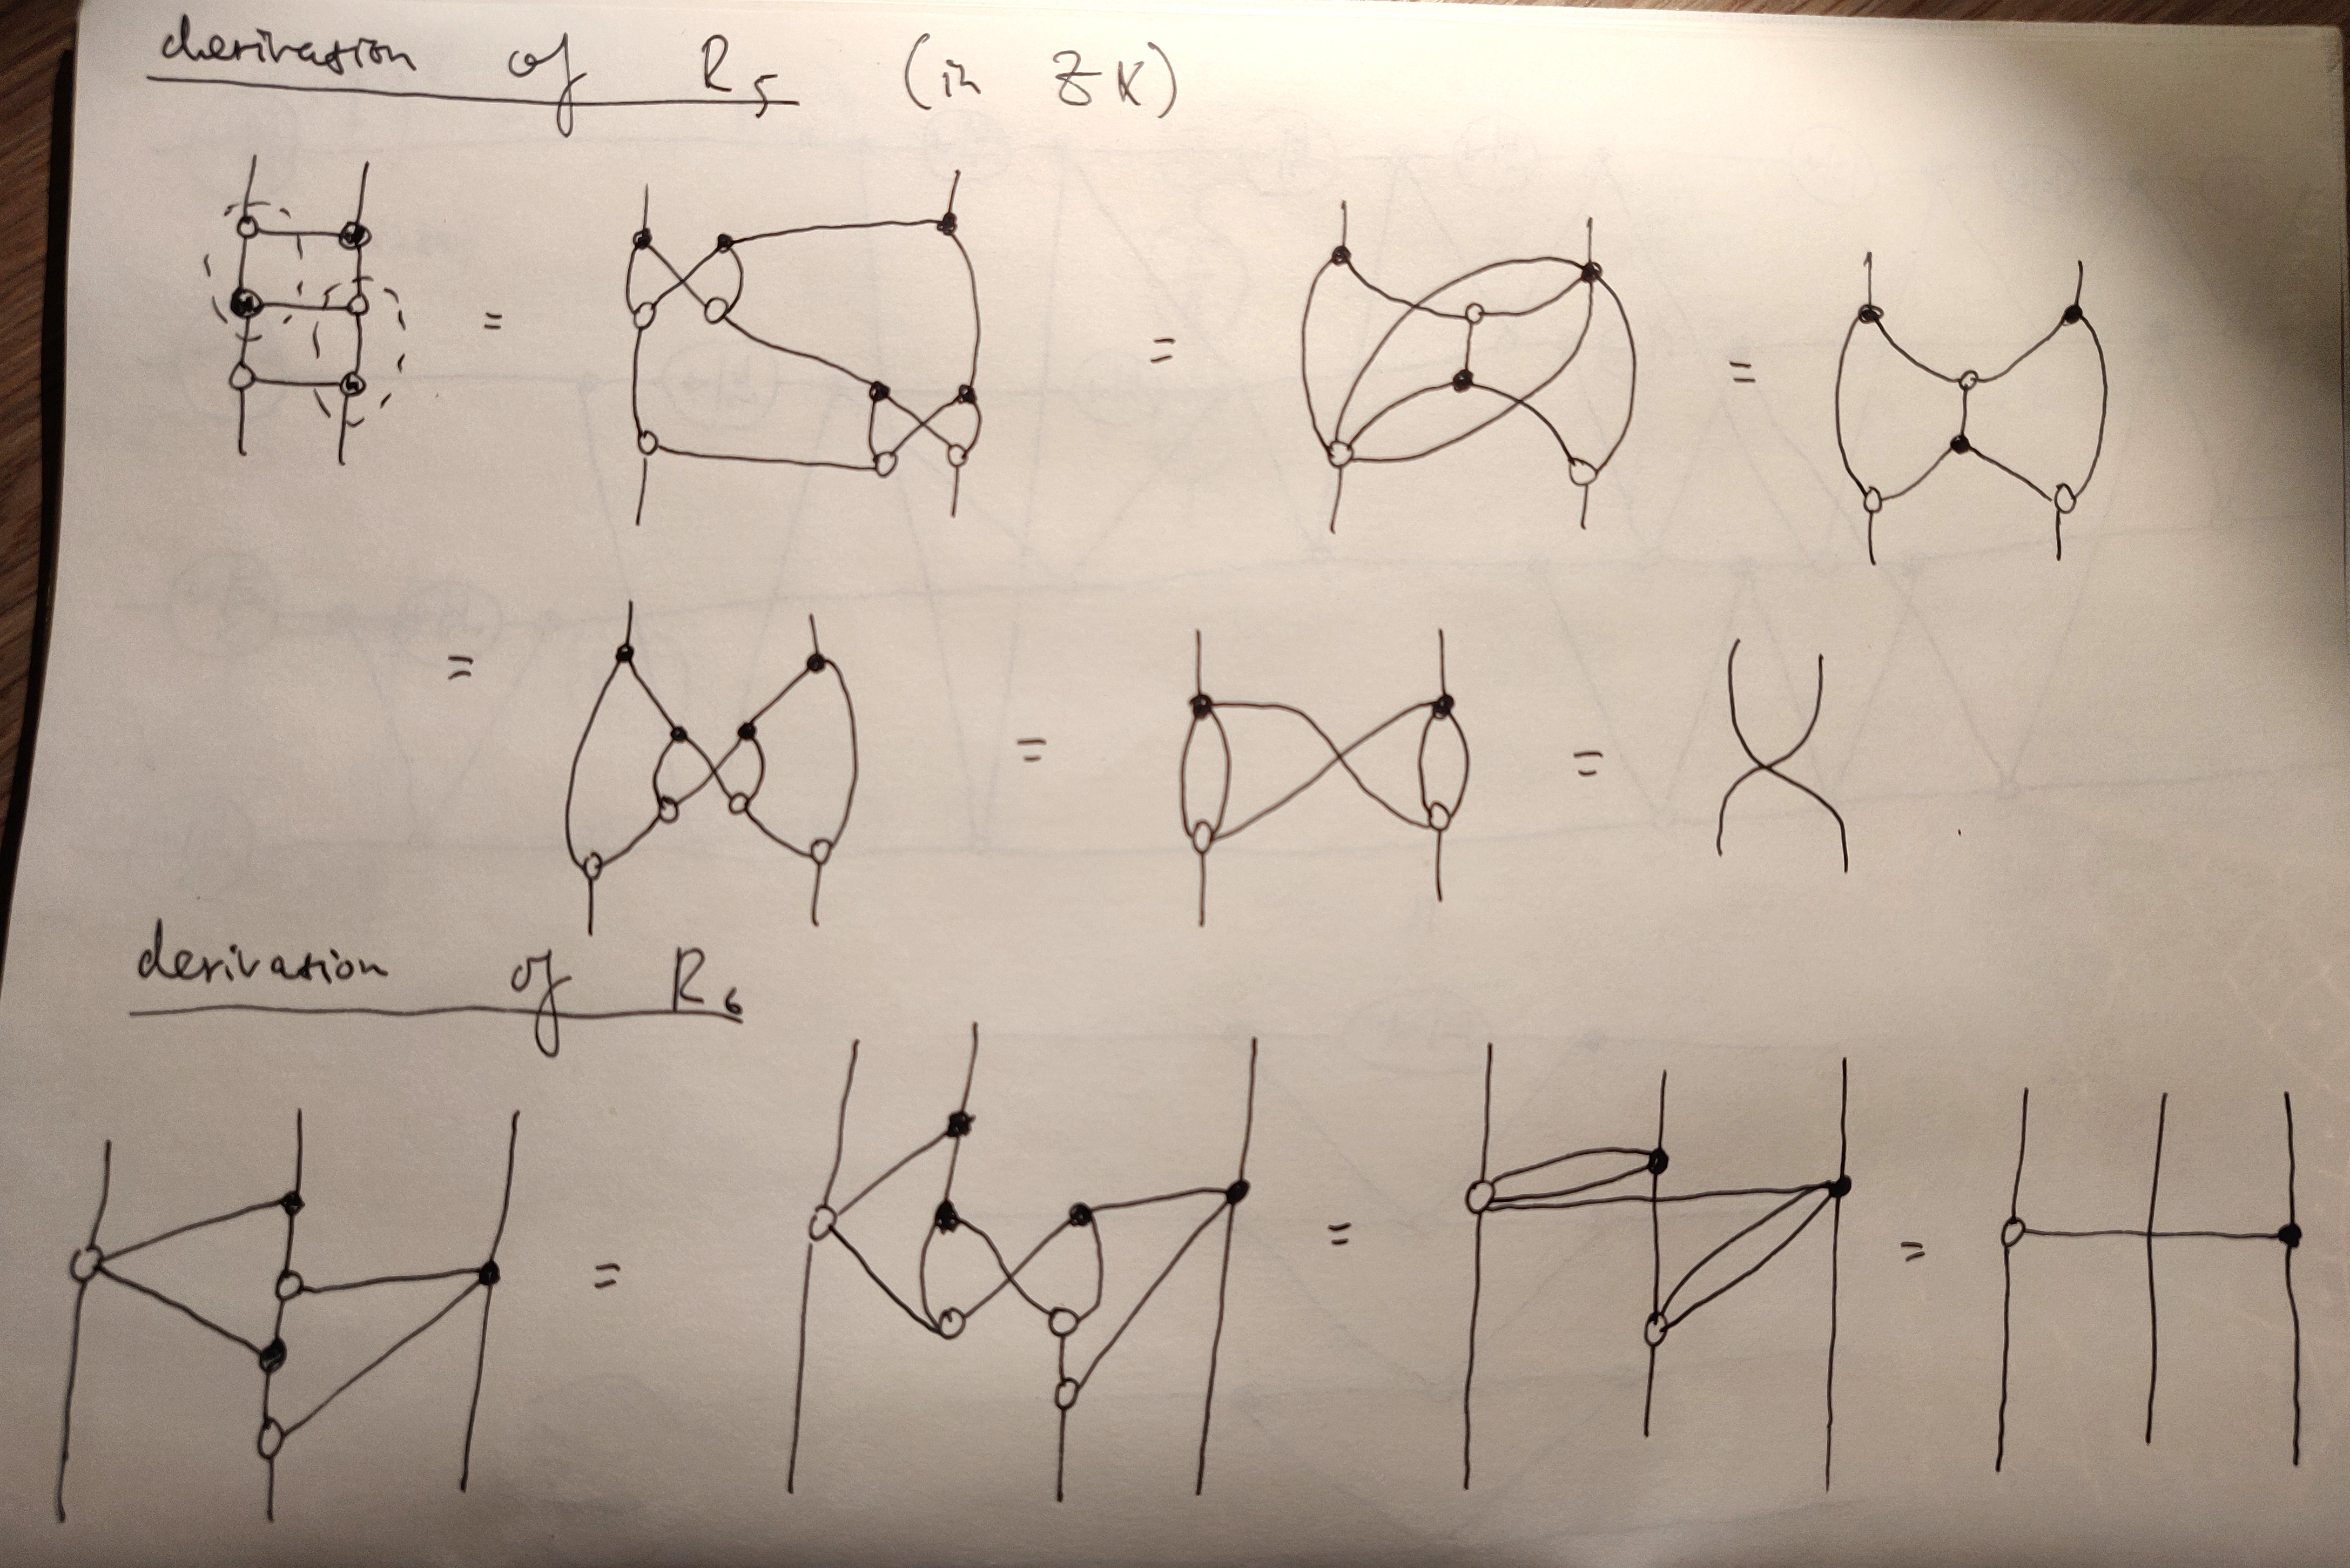 derivation of R5 (in ZX)
=
=
=
=
=
=
derivation of R6
=
=
=